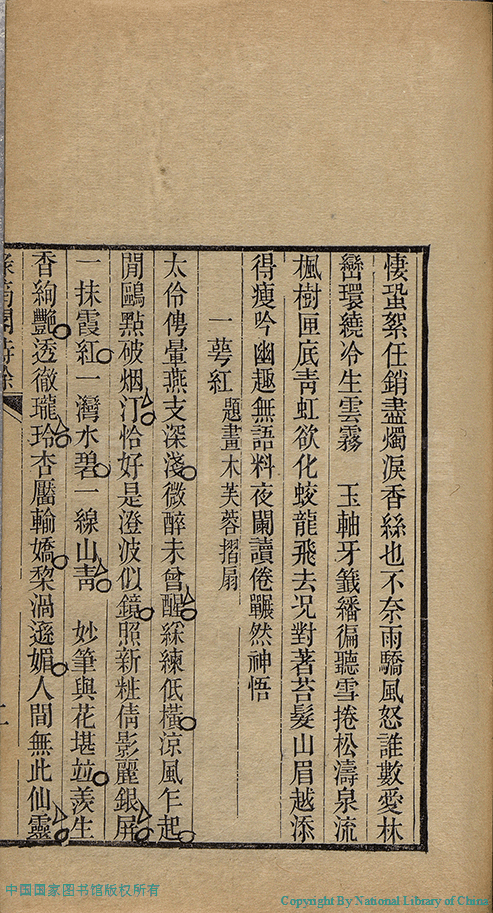 悽蛩絮任銷盡燭淚香絲也不奈雨驕風怒誰數愛林
巒環繞冷生雲霧　玉軸牙籤繙徧聽雪捲松濤泉流
楓樹匣底青虹欲化蛟龍飛去况對著苔髮山眉越添
得瘦吟幽趣無語料夜闌讀倦囅然神悟
一萼紅題畫木芙蓉摺扇
太伶俜暈燕支深淺微醉未曾醒綵練低橫涼風乍起
閒鷗點破烟汀恰好是澄波似鏡照新粧倩影麗銀屏
一抹霞紅一灣水碧一線山靑　妙筆與花堪竝羨生
香絢艷透徹瓏玲杏靨輸嬌棃渦遜媚人間無此仙靈
二
中国国家图书馆版权所有
Copyright By National Library of China